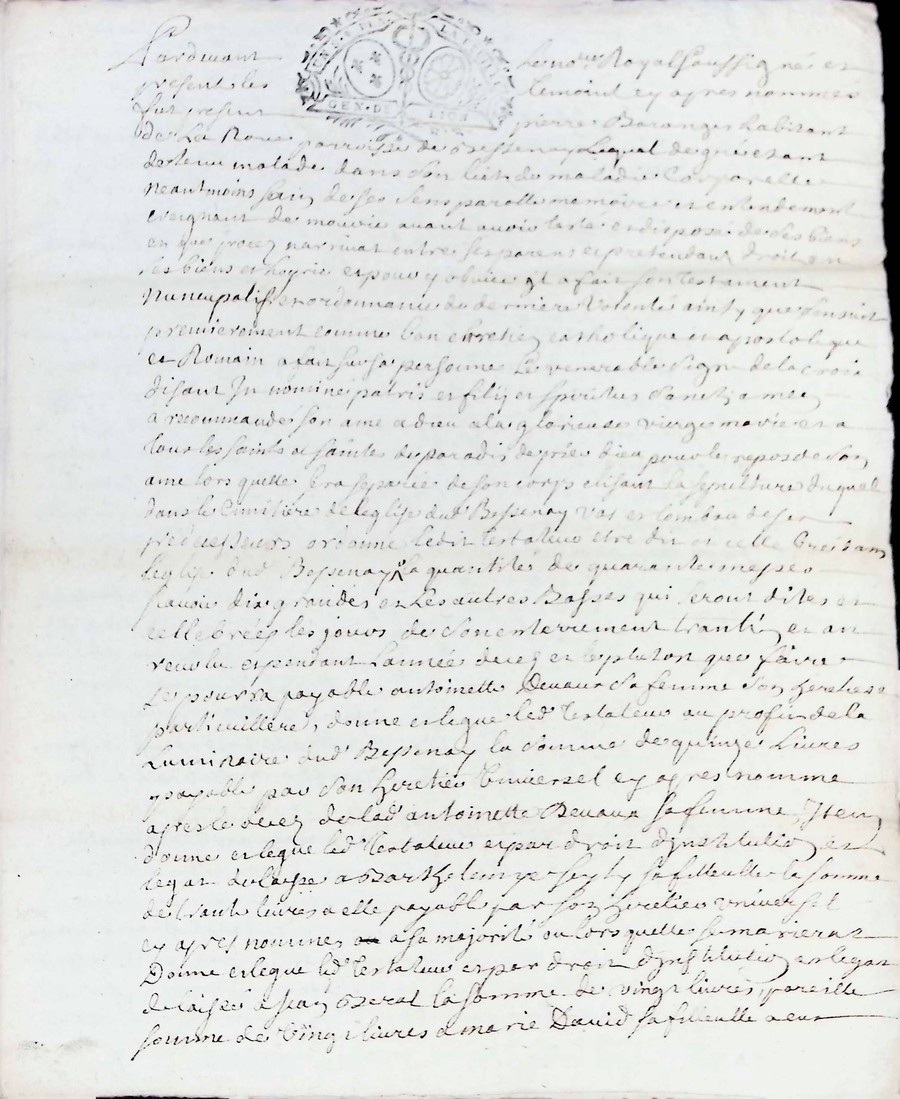 Pardevant Le no.re Royal soussignés et
present les temoins cy apres nommés
fut present pierre Baranges habitant
de La Roue parroisse de Bessenay Lequel de gré etant
detenu malade dans son lict de maladie Corporelle
neantmoins sain de ses sens parolle memoire et entendement
creignant de mourir avant avoir testé et disposé de ses biens
en que procez narrivat entre ses parens et pretendans droit en
ses biens et hoyrie et pour y obvier il a fait son testament
Nuncupatif et ordonnance de derniere Volonté ainsy que sensuit
premierement comme bon chretien catholique et apostolique
et Romain a fait sur sa personne Le venerable signe de la croix
disant In nomine patris et filij et spiritus Sancti amen
a recommandé son ame a dieu a la glorieuse vierge marie et a
tous les saints et saintes du paradis de prier dieu pour le repos de son
ame lors quelle sera separée de son corps elisant La sepulture duquel
dans le Cimitiere de leglise dud Bessenay Vas et tombeau de ses
predecesseurs ordonne ledit Testateur etre dit et cellebré dans
leglise dud Bessenay la quantité de quarante messes
scavoir dix grandes et Les autres Basses qui seront dites et
cellebrées les jours de son enterrement et an
revolu et pendant L'année de ces et le plutôt que faire
se pourra payable antoinette Devaux sa femme son heretiere
particuillere, donne et legue led Testateur au profit de la
Luminaire dud Bessenay la somme de quinze Livres
payable par son heretier Universel cy apres nomme
apres le decez de lad antoinette Devaux sa femme, Item
donne et legue led Testateur et par droit dinstitution et
legat delaisse a Barthelemye sa filleulle la somme
de trante livres a elle payable par son heretier universel
cy apres nommé a sa majorité ou lors quelle se mariera
Donne et legue led Testateur et par droit dinstitution et legat
delaissé a Jean la somme de vingt livres, pareille
somme de Vingt livres a marie David sa filleulle a eux